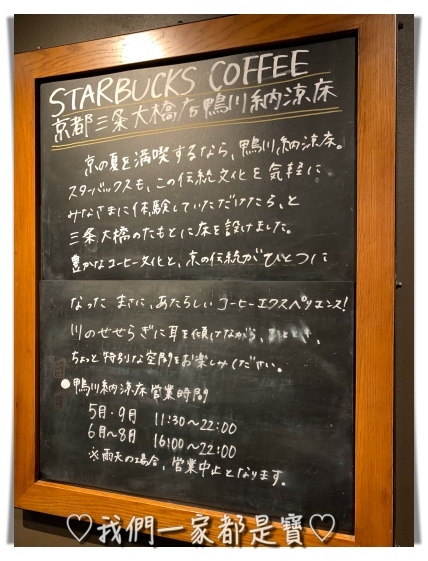 STARBUCKS COFFEE
京都三条大橋店鴨川納涼床
京の夏を満喫するなら、鴨川納涼床。
スターバックスも、この伝統文化を気軽に
みなさまに体験していただけたら、と
三条大橋のたもとに床を設けました。
豊かなコーヒー文化と、京の伝統がひとつに
なった まさに、あたらしいコーヒーエクスペリエンス!
川のせせらぎに耳を傾けながら、ひととき、
ちょっと特別な空間をお楽しみください。
●鴨川納涼床営業時間
5月・9月 11:30~22:00
6月~8月 16:00~22:00
※雨天の場合、営業中止となります。
♡我們一家都是寶♡